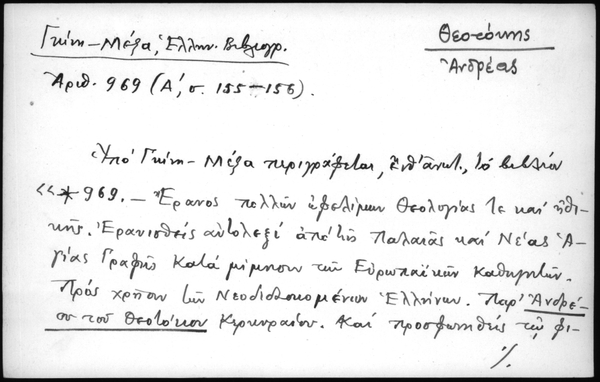 Γκίνη – Μέξα, Ἑλλην. Βιβλιογρ.
Θεοτόκης
Ἀνδρέας
Ἀριθ. 969 (Α΄, σ. 155–156).
Ὑπό Γκίνη – Μέξα περιγράφεται, ἔνθ' ἀνωτ., τό βιβλίον
«* 969. – Ἔρανος πολλῶν ὠφελίμων Θεολογίας τε καί ἠθι-
κῆς. Ἐρανισθείς αὐτολεξί ἀπό τῆς Παλαιᾶς καί Νέας Ἁ-
γίας Γραφῆς κατά μίμησιν τῶν Εὐρωπαϊκῶν Καθηγητῶν.
Πρός χρῆσιν τῶν Νεοδιδασκομένων Ἑλλήνων. Παρ' Ἀνδρέ-
ου τοῦ Θεοτόκου Κερκυραίου. Καί προσφωνηθείς τῷ φι-
./.